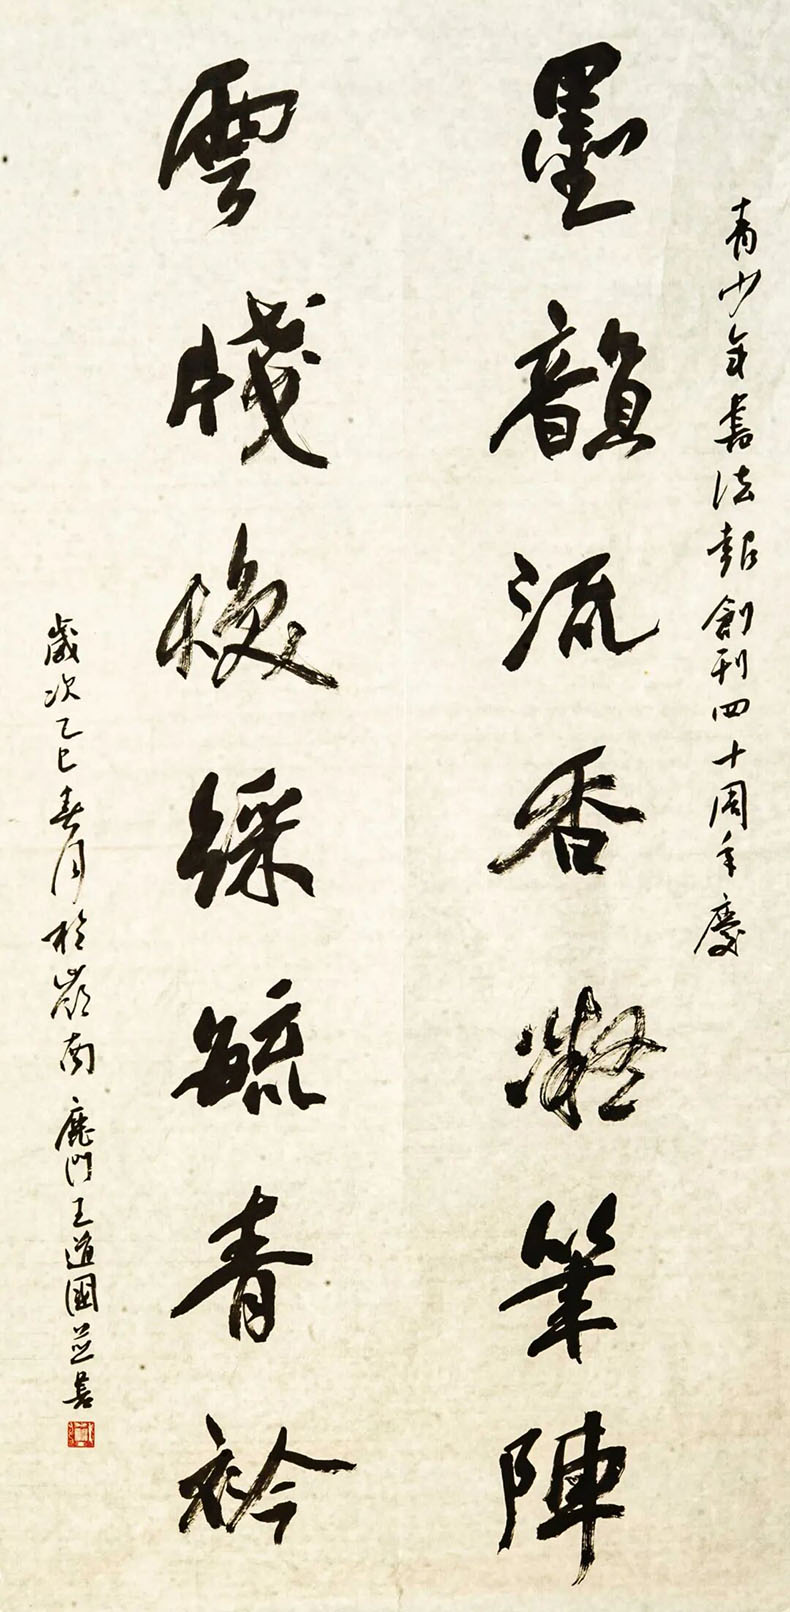 青少年書法報創刊四十周年慶
墨韻流香凝筆陣
雲牋煥綵毓青衿
歲次乙巳春月於嶺南鹿門王道國並書